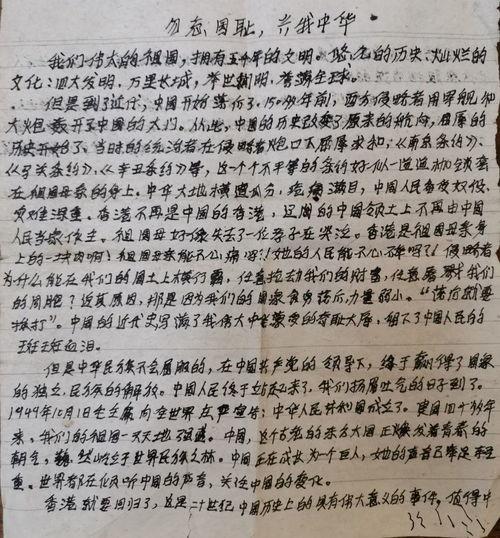 勿忘国耻,兴我中华
我们伟大的祖国,拥有五千年的文明。悠久的历史、灿烂的
文化:四大发明、万里长城,举世闻明,誉满全球。
但是到了近代,中国开始落后了。150多年前,西方侵略者用军舰和
大炮轰开了中国的大门。从此,中国的历史改变了原来的航向,屈辱的
历史开始了,当时的统治者在侵略者炮口下屈辱求和;《南京条约》、
《马关条约》、《辛丑条约》等,这一个个不平等的条约好似一道道枷锁套
在祖国母亲的身上,中华大地横遭瓜分,疮痍满目,中国人民备受奴役、
灾难深重。香港不再是中国的香港,辽阔的中国领土上不再由中国
人民当家作主。祖国母好像失去了一位孕子在哭泣。香港是祖国母亲身
上的一块肉啊!祖国母亲能不心痛吗?她的人民能不心碎吗?侵略者
为什么能在我们的国土上横行霸,任意掠去我们的财富,任意我们
的同胞?追其原因,那是因为我们的国家贫穷落后,力量弱小。“落后就要
挨打”。中国的近代史写满了我伟大中华蒙受的奇耻大辱,留下了中国人民的
斑斑血泪。
但是中华民族不会屈服的,在中国共产党的领导下,终于赢得了国家
的独立,民族的解放。中国人民终于站起来了,我们扬眉吐气的日子到了。
1949年10月1日毛主席向全世界庄严宣告:中华人民共和国成立了。建国四十多年
来,我们的祖国一天天地强盛。中国,这个古老的东方大国正焕发着青春的
朝气,巍然屹立于世界民族之林。中国正在成长为一个巨人,她的声音已举足轻
重。世界都在倾听中国的声音,关注中国的变化。
香港就要回归了,这是二十世纪中国历史上的具有伟大意义的事件,值得中